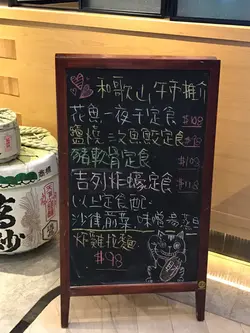 和歌山 午市推介
花魚一夜干定食 $108
鹽燒三文魚鮫定食
豬軟骨定食 $108
吉列炸蠔定食 $118
以上定食包
沙律前菜 味噌湯
炸雞拉麵
$98